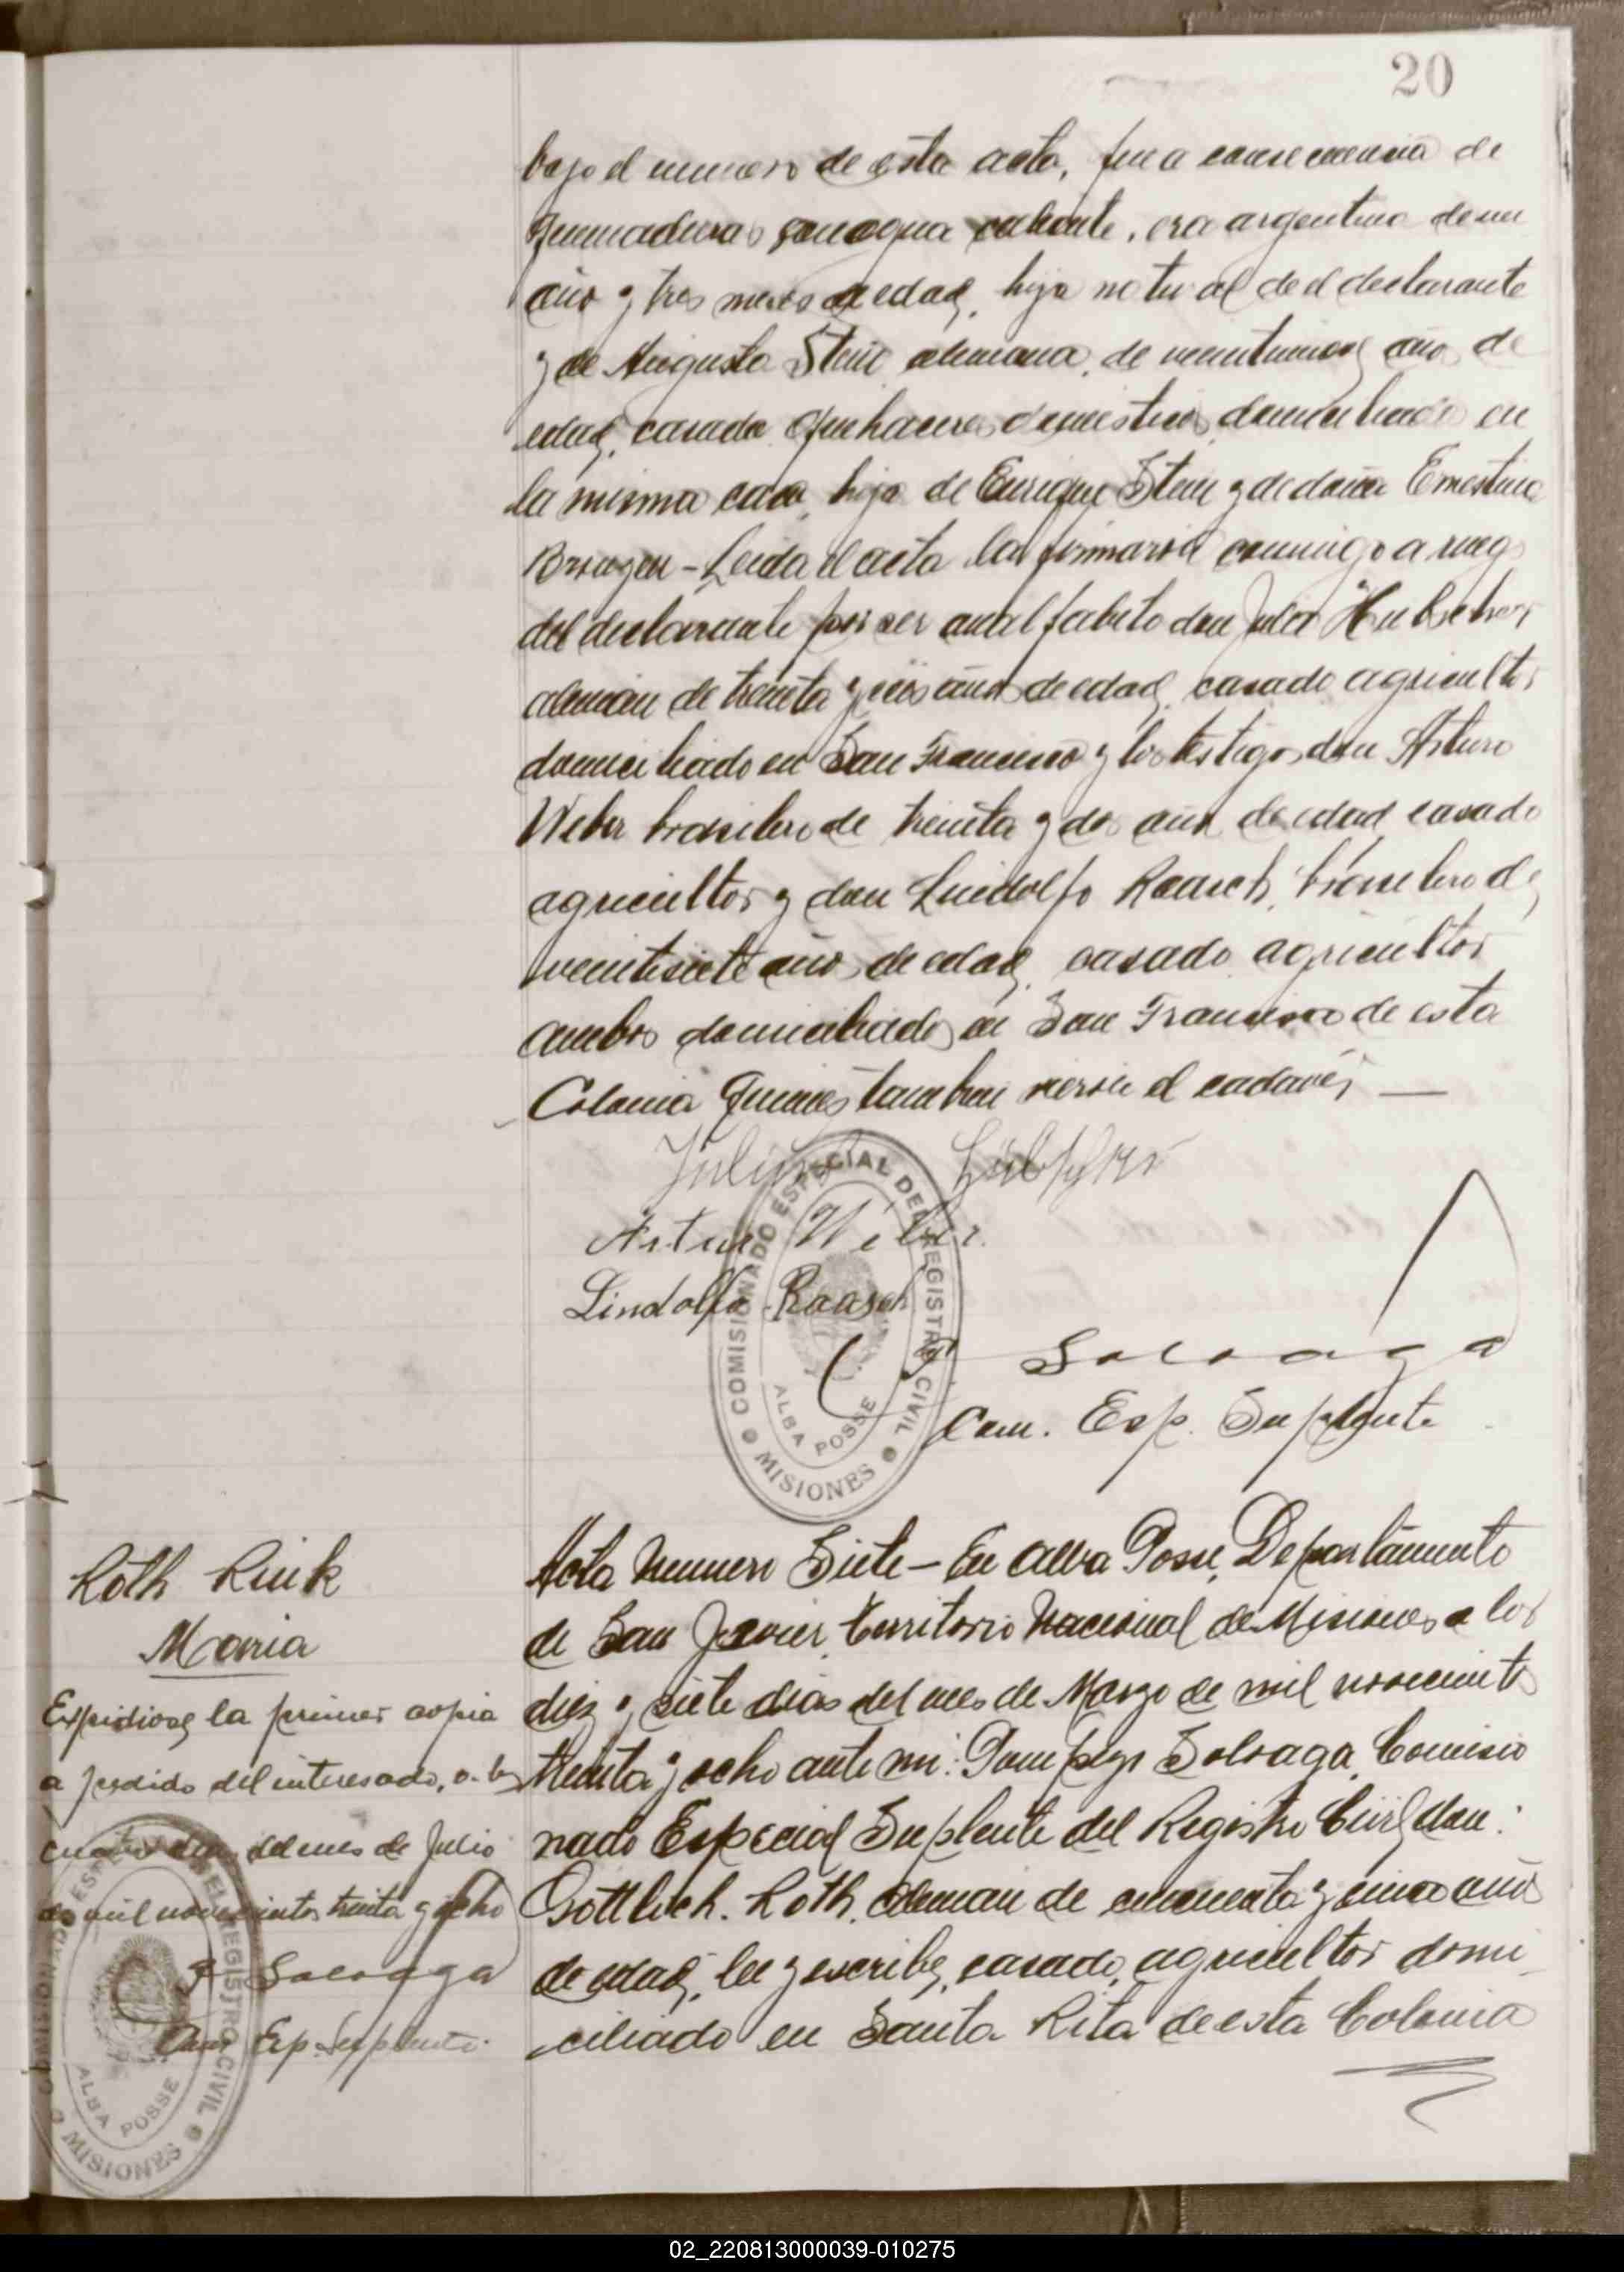 20
bajo el numero de esta acta, fue a consecuencia de
quemaduras con agua caliente, era argentina de un
año y tres meses de edad, hija natural de el declarante
y de Augusta Stein alemana, de veintinueve años de
edad, casada quehaceres domesticos domiciliada en
la misma casa, hija de Enrique Stein y de doña Ernestina
Leida el acta la firmaron conmigo a ruego
del declarante por ser analfabeto don Julio Hubscher,
aleman de treinta y seis años de edad, casado, agricultor
domiciliado en San Francisco y los testigos don Arturo
Weber brasilero de treinta y dos años de edad casado
agricultor y don Lindolfo Raasch, brasilero de
veintesiete años de edad, casado, agricultor
ambos domiciliados en San Francisco de esta
Colonia Quienes tambien vieron el cadaver —
Julius Hübscher
Artur Weber.
Lindolfo Raasch
P Soloaga
Com. Esp. Suplente
COMISIONADO ESPECIAL DEL REGISTRO CIVIL
ALBA POSSE
MISIONES
Roth Rink
Maria
Expidiose la primer copia
a pedido del interesado, a los
cuatro dias del mes de Julio
de mil novecientos treinta y ocho
P Soloaga
Com Esp. Suplente.
COMISIONADO ESPECIAL DEL REGISTRO CIVIL
ALBA POSSE
MISIONES
Acta Numero Siete – En Alba Posse, Departamento
de San Javier, territorio Nacional de Misiones a los
diez y siete dias del mes de Marzo de mil novecientos
treinta y ocho ante mi: Pompeyo Soloaga, Comisio
nado Especial Suplente del Registro Civil, don:
Gottlieb. Roth, aleman de cincuenta y cinco años
de edad, lee y escribe, casado, agricultor domi
ciliado en Santa Rita de esta Colonia
02_220813000039-010275